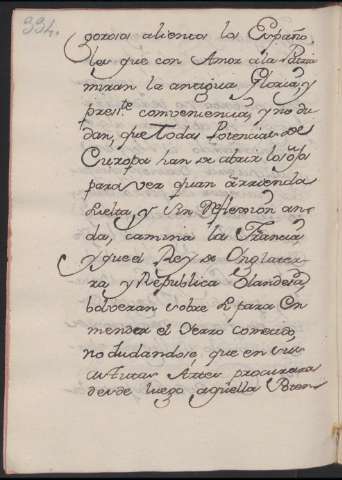 334.
goroia alienta los Españo-
les que con Amor a la Patria
miran la antigua Gloria, y
pres.te conveniencia, y no du
dan, que todas Potencias de
Europa han de abrir los ojos
para ver quan a rrienda
suelta, y sin Reflexion an-
da, camina la Francia,
y que el Rey de Inglater-
ra, y Republica Olandesa
bolveran sobre si para en
mendar el Yerro cometido,
no dudandose, que en sus
Artes procurara
desde luego aquella Poten